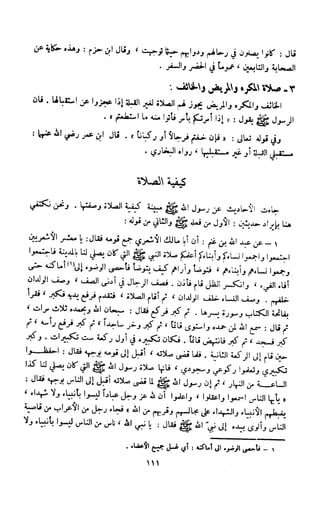 قال : كانوا يصلون في رحالهم ودوابهم حيثما توجهت ، وقال ابن حزم : وهذه حكاية عن
الصحابة والتابعين ، عموماً في الحضر والسفر .
٣ ـ صلاة المكره والمريض والخائف :
الخائف والمكره والمريض يجوز لهم الصلاة لغير القبلة إذا عجزوا عن استقبالها . فإن
الرسول ﷺ يقول : « إذا أمرتكم بأمر فأتوا منه ما استطعتم » .
وفي قوله تعالى : « فإن خفتم فرجالاً أو ركباناً » . قال ابن عمر رضي الله عنهما :
مستقبلي القبلة أو غير مستقبليها ، رواه البخاري .
كيفية الصلاة
جاءت الأحاديث عن رسول الله ﷺ مبينة كيفية الصلاة وصفتها . ونحن نكتفي
هنا بإيراد حديثين : الأول من فعله ﷺ والثاني من قوله :
١ ـ عن عبد الله بن غنم : أن أبا مالك الأشعري جمع قومه فقال : يا معشر الأشعريين
اجتمعوا واجمعوا نساءكم وأبناءكم أعلمكم صلاة النبي ﷺ التي كان يصلي لنا بالمدينة فاجتمعوا
وجمعوا نساءهم وأبناءهم ، فتوضأ وأراهم كيف يتوضأ فأحصى الوضوء إلى(١) أماكنه حتى
أفاء الفيء ، وانكسر الظل قام فأذن . فصف الرجال في أدنى الصف ، وصف الولدان
خلفهم . وصف النساء خلف الولدان ، ثم أقام الصلاة ، فتقدم فرفع يديه فكبر ، فقرأ
بفاتحة الكتاب وسورة يسرها . ثم كبر فركع فقال : سبحان الله وبحمده ثلاث مرات ،
ثم قال : سمع الله لمن حمده واستوى قائماً ، ثم كبر وخر ساجداً ، ثم كبر فرفع رأسه ، ثم
كبر فسجد ، ثم كبر فانتهض قائماً . فكان تكبيره في أول ركعة ست تكبيرات . وكبر
حين قام إلى الركعة الثانية . فلما قضى صلاته ، أقبل إلى قومه بوجهه فقال : احفظوا
تكبيري وتعلموا ركوعي وسجودي ، فإنها صلاة رسول الله ﷺ التي كان يصلي لنا كذا
الساعة من النهار ، ثم إن رسول الله ﷺ لما قضى صلاته أقبل إلى الناس بوجهه فقال :
« يأيها الناس اسمعوا واعقلوا ، واعلموا أن لله عز وجل عباداً ليسوا بأنبياء ولا شهداء ،
يغبطهم الأنبياء والشهداء على مجالسهم وقربهم من الله » فجاء رجل من الأعراب من قاصية
الناس وألوى بيده إلى نبي الله ﷺ فقال : يا نبي الله ، ناس من الناس ليسوا بأنبياء ولا
١ ـ فأحصى الوضوء إلى أماكنه : أي غسل جميع الأعضاء .
١١١